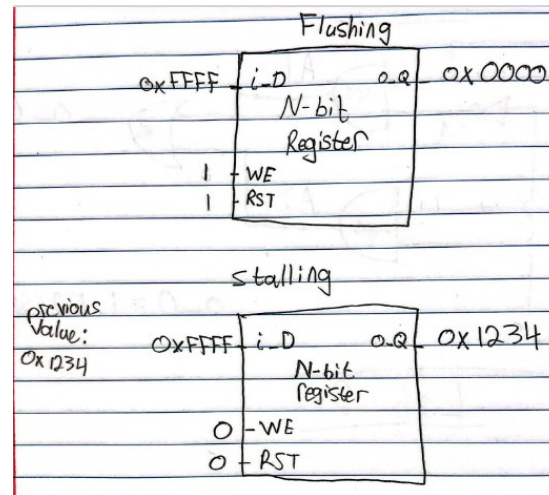 Flushing
0xFFFF i_D o_Q 0x0000
N-bit
Register
1 WE
1 RST
stalling
previous
value:
0x1234
0xFFFF i_D o_Q 0x1234
N-bit
register
0 WE
0 RST